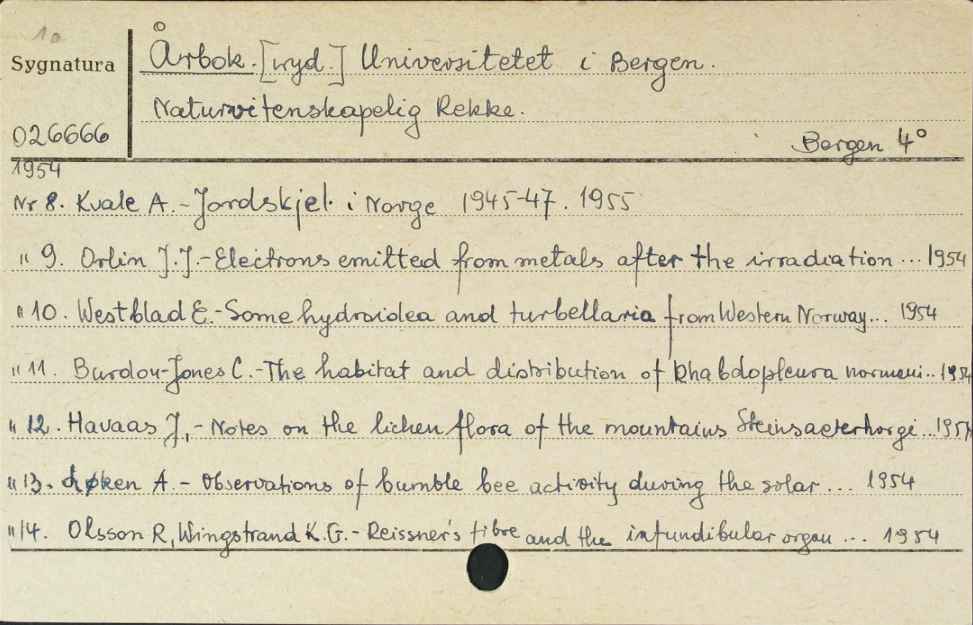 10
Årbok. [wyd.] Universitetet i Bergen.
Sygnatura
Naturvitenskapelig Rekke.
026666
Bergen 4°
1954
Nr 8. Kvale A. - Jordskjel. i Norge 1945-47. 1955
" 9. Orlin J.J. - Electrons emitted from metals after the irradiation ... 1954
" 10. Westblad E. - Some hydroidea and turbellaria from Western Norway... 1954
" 11. Burdon-Jones C. - The habitat and distribution of Rhabdopleura normani.. 1954
" 12. Havaas J. - Notes on the lichen flora of the mountains Steinsaeterhorgi ...1954
" 13. Løken A. - Observations of bumble bee activity during the solar ... 1954
" 14. Olsson R, Wingstrand K.G. - Reissner's fibre and the infundibular organ ... 1954